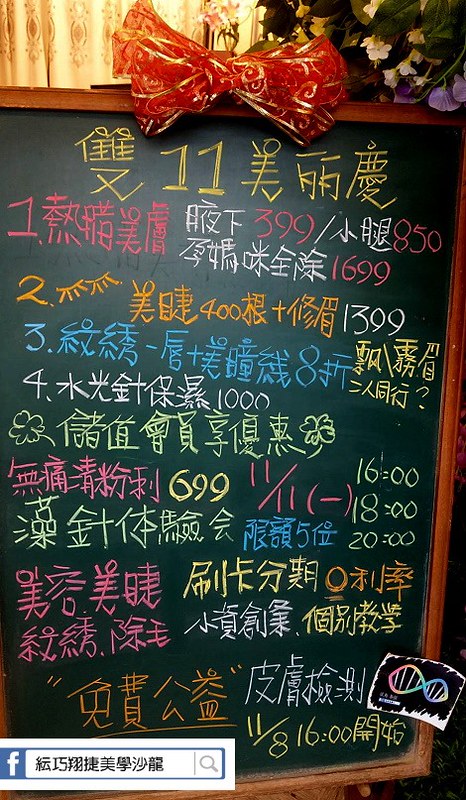 雙11美丽慶
1.熱蜡美膚 腋下399/小腿850
孕媽咪全除1699
2. 美睫400根+修眉1399
3.紋綉-唇+美瞳线8折
飄霧眉
二人同行?
4.水光針保濕1000
儲值會員享優惠
無痛清粉刺699
藻針体驗会
11/11(一)
限額5位
16:00
18:00
20:00
美容.美睫
紋綉.除毛
刷卡分期0利率
小資創業、個別教学
"免費公益"
皮膚檢測
11/8 16:00開始
f 紜巧翔捷美學沙龍